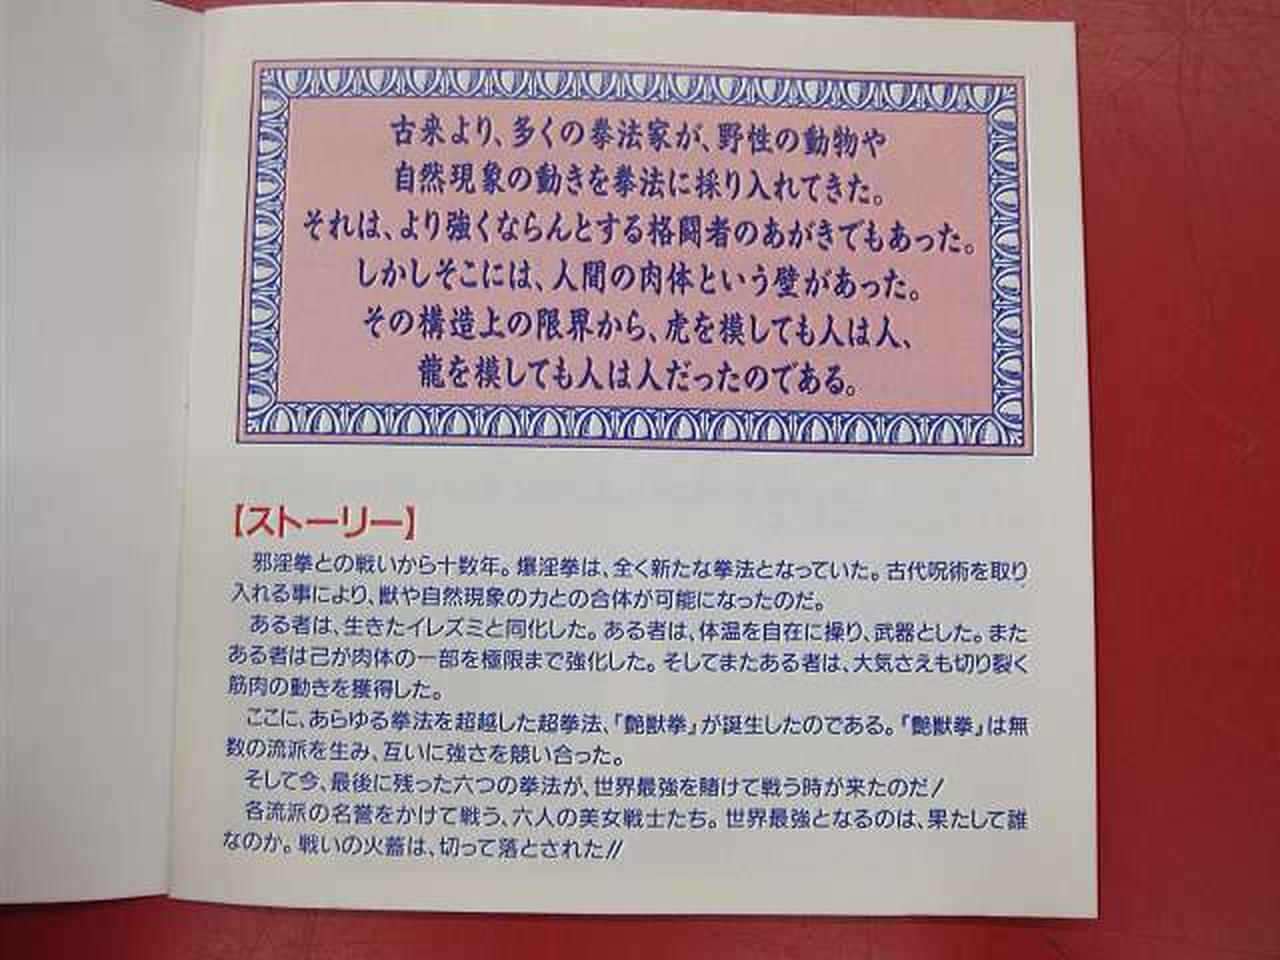 古来より、多くの拳法家が、野性の動物や
自然現象の動きを拳法に採り入れてきた。
それは、より強くならんとする格闘者のあがきでもあった。
しかしそこには、人間の肉体という壁があった。
その構造上の限界から、虎を模しても人は人、
龍を模しても人は人だったのである。
【ストーリー】
邪淫拳との戦いから十数年。爆淫拳は、全く新たな拳法となっていた。古代呪術を取り
入れる事により、獣や自然現象の力との合体が可能になったのだ。
ある者は、生きたイレズミと同化した。ある者は、体温を自在に操り、武器とした。また
ある者は己が肉体の一部を極限まで強化した。そしてまたある者は、大気さえも切り裂く
筋肉の動きを獲得した。
ここに、あらゆる拳法を超越した超拳法、「艶獣拳」が誕生したのである。「艶獣拳」は無
数の流派を生み、互いに強さを競い合った。
そして今、最後に残った六つの拳法が、世界最強を賭けて戦う時が来たのだ!
各流派の名誉をかけて戦う、六人の美女戦士たち。世界最強となるのは、果たして誰
なのか。戦いの火蓋は、切って落とされた!!